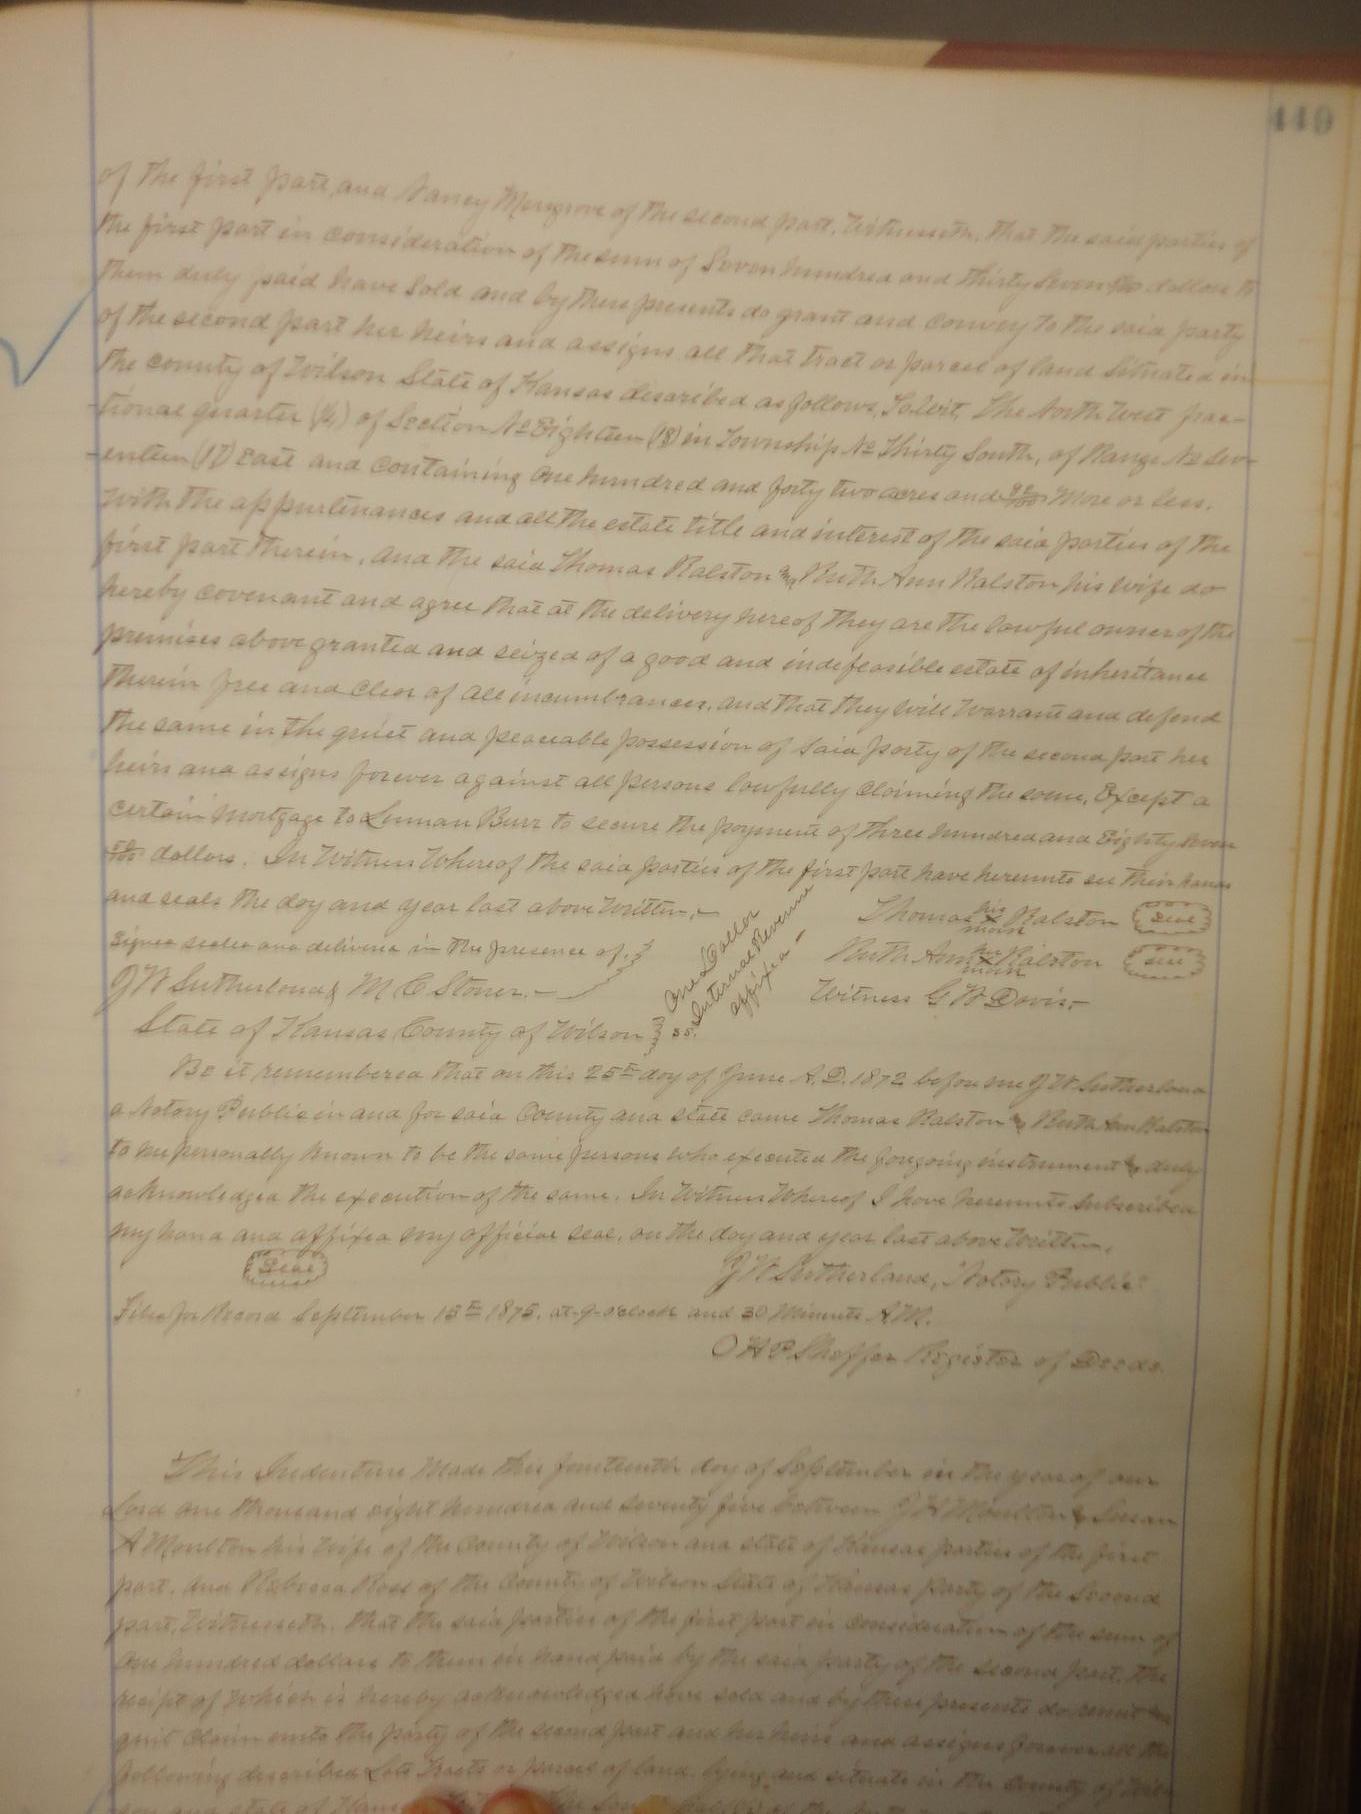 449
of the first part, and Nancy Musgrove of the second part, Witnesseth, that the said parties of
the first part in consideration of the sum of Seven hundred and thirty Seven dollars to
them duly paid have Sold and by these presents do grant and convey to the said party
of the second part her heirs and assigns all that tract or parcel of land Situated in
the county of Wilson State of Kansas described as follows, To Wit, The North West frac-
tional quarter (¼) of Section No Eighteen (18) in Township No Thirty South, of Range No Sev-
enteen (17) East and containing One hundred and forty two acres and More or less.
With the appurtenances and all the estate title and interest of the said parties of the
first part therein, and the said Thomas Ralston and Ruth Ann Ralston his wife do
hereby covenant and agree that at the delivery hereof they are the lawful owner of the
premises above granted and seized of a good and indefeasible estate of inheritance
therein free and clear of all incumbrances, and that they Will Warrant and defend
the same in the quiet and peaceable possession of said party of the second part her
heirs and assigns forever against all persons lawfully claiming the same, Except a
certain Mortgage to Luman Burr to secure the payment of three hundred and Eighty Seven
dollars. In Witness Whereof the said parties of the first part have hereunto set their hands
and seals the day and year last above Written,
Thomas his X mark Ralston Seal
Signed sealed and delivered in the presence of
Ruth Ann her X mark Ralston Seal
J W Sutherland & M C Stoner.
Witness G W Davis
One Dollar
Internal Revenue
affixed
State of Kansas County of Wilson } SS.
Be it remembered that on this 25th day of June A.D. 1872 before me J W Sutherland
a Notary Public in and for said County and state came Thomas Ralston & Ruth Ann Ralston
to me personally known to be the same persons who executed the foregoing instrument & duly
acknowledged the execution of the same. In Witness Whereof I have hereunto Subscribed
my hand and affixed my official seal, on the day and year last above Written,
Seal
J W Sutherland, Notary Public
Filed for Record September 15th 1875. at 9 o'clock and 30 Minutes A.M.
O H P Shoffer Register of Deeds.
This Indenture Made this fourteenth day of September in the year of our
Lord one thousand eight hundred and seventy five between J H Moulton & Susan
A Moulton his Wife of the County of Wilson and state of Kansas parties of the first
part, and Rebecca Ross of the County of Wilson State of Kansas Party of the Second
part, Witnesseth, that the said parties of the first part in consideration of the sum of
One hundred dollars to them in hand paid by the said party of the second part, the
receipt of Which is hereby acknowledged have sold and by these presents do remit and
quit Claim unto the party of the second part and her heirs and assigns forever all the
following described Lots Tracts or parcel of land. lying and situate in the County of Wil-
son and state of